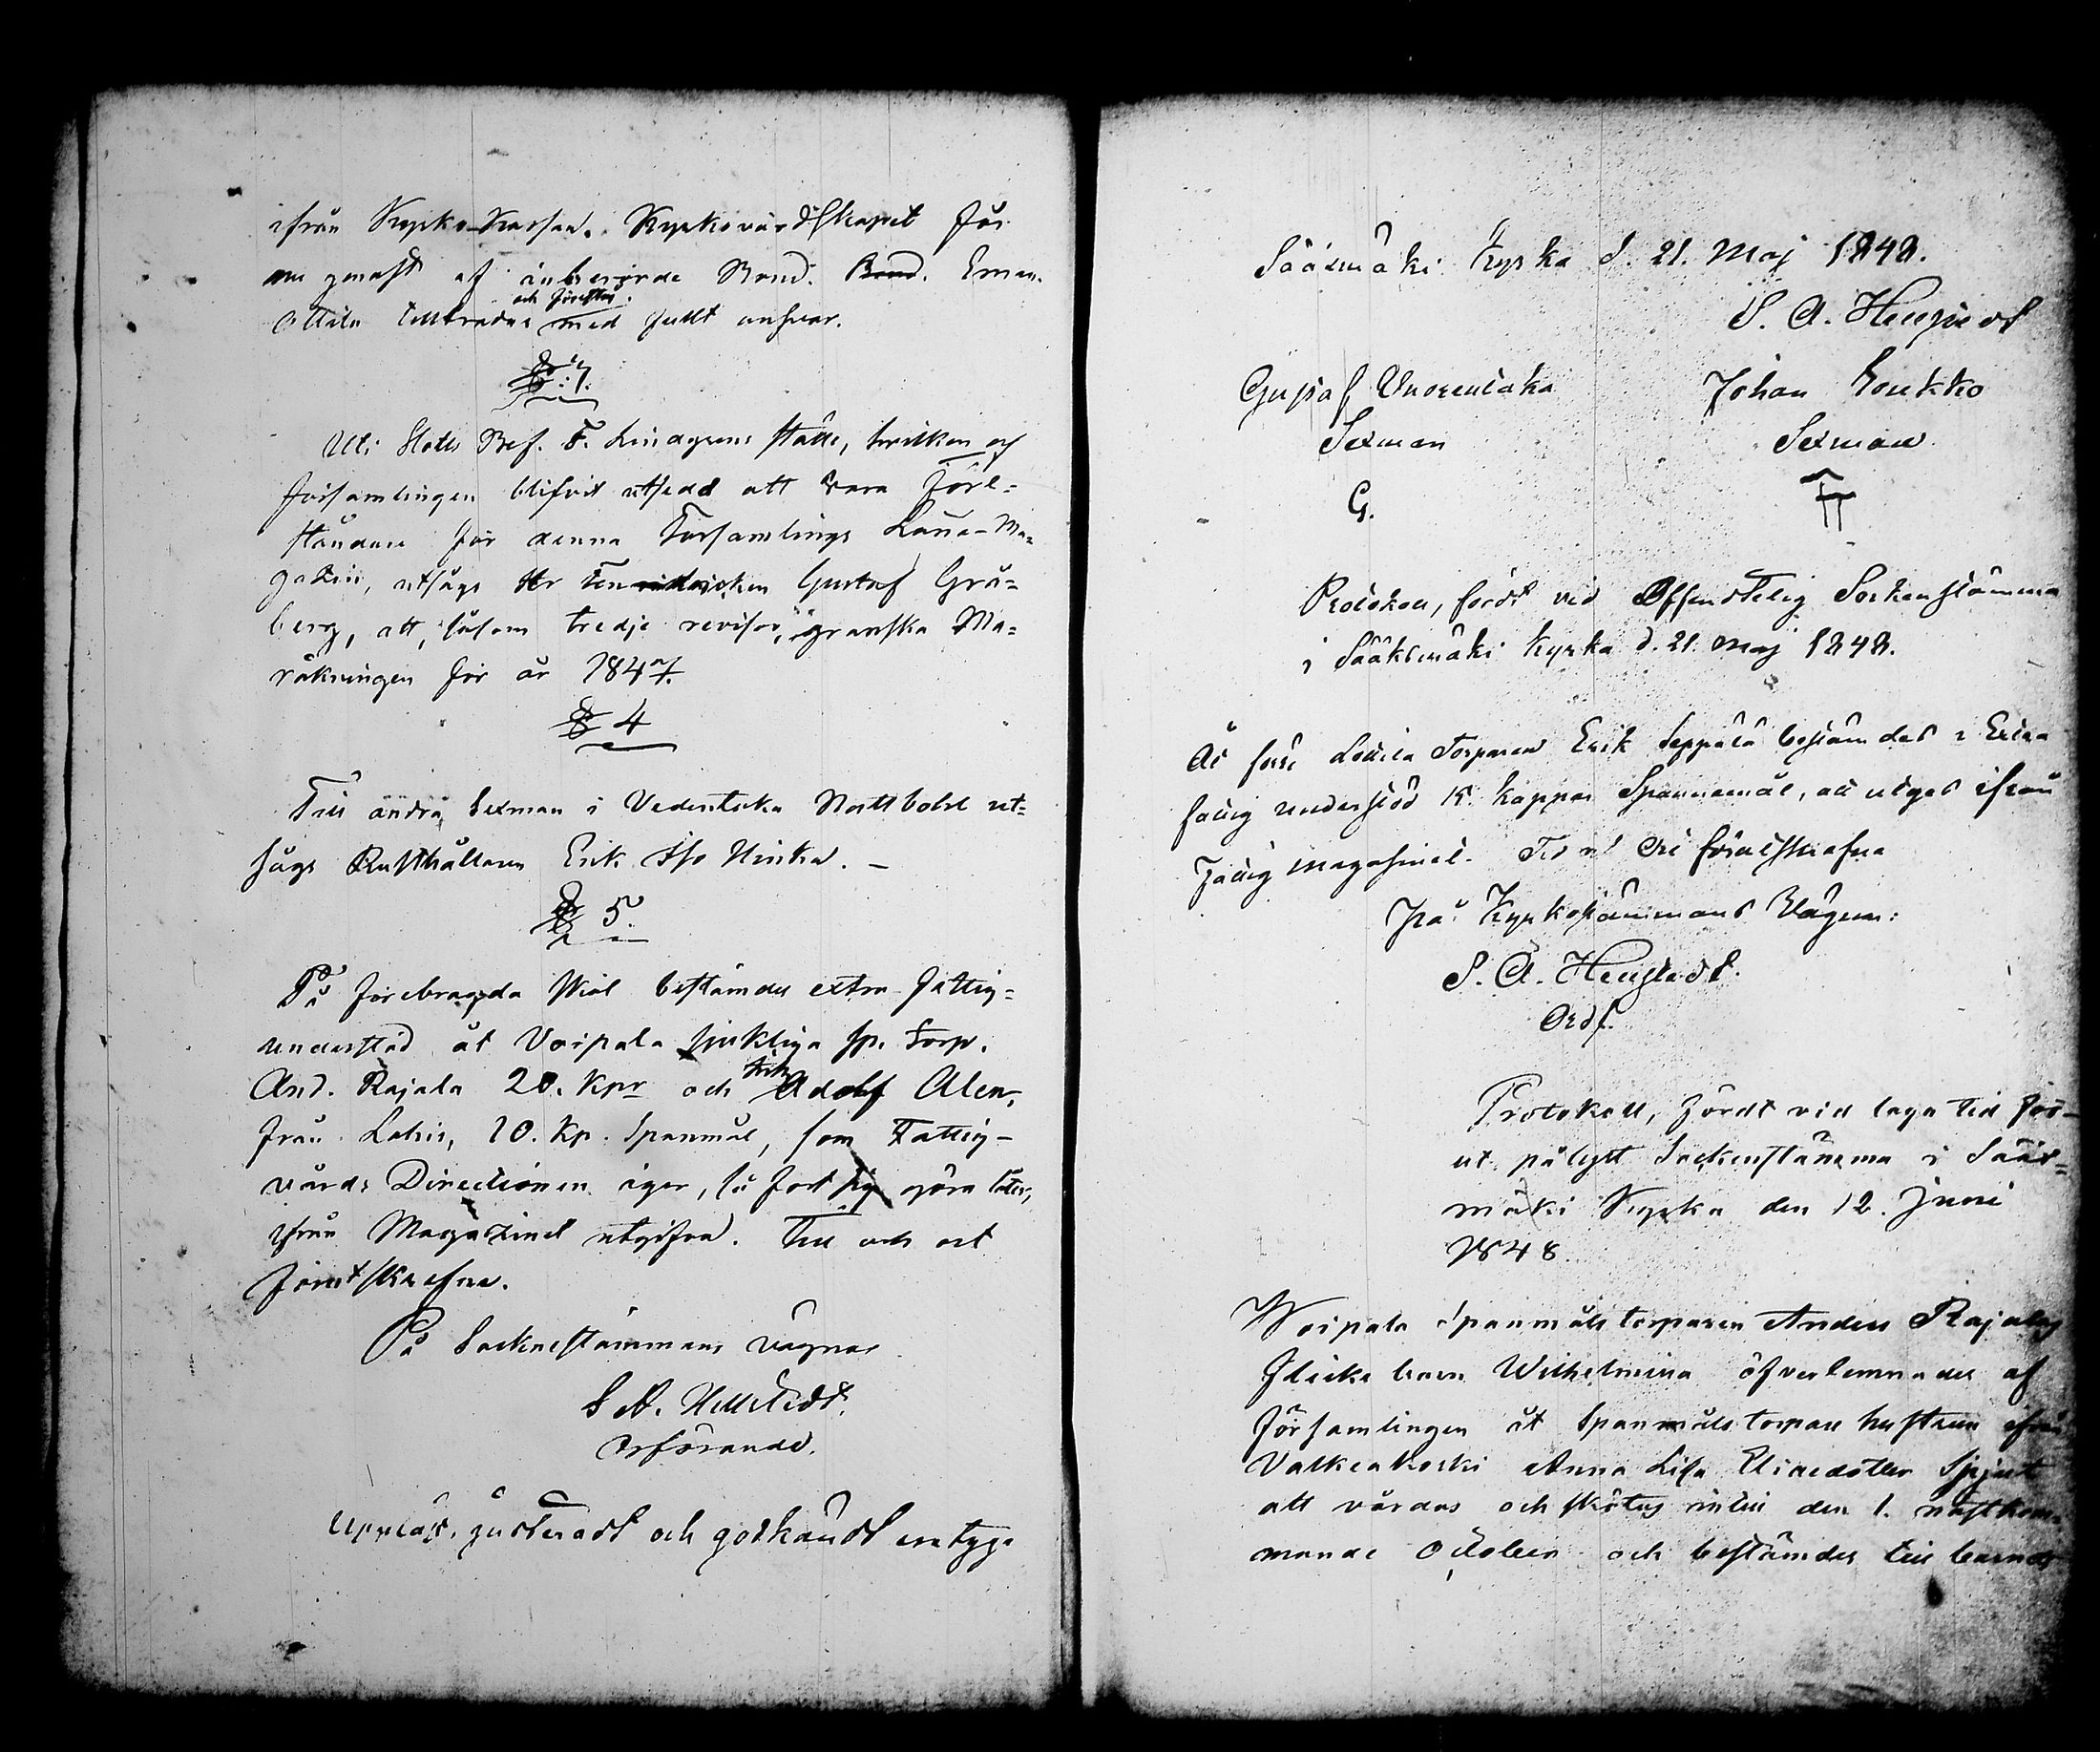 ifrån Kyrko-Kassan. Kyrkovärdskapet får
nu genast af ånberörde Bond. Bond. Eman.
och förestås.
Ottila tillträdas med fullt ansvar.
§ :7.
Uti Stelle Bef. F. Lindgrens ställe, hvilken af
församlingen blifvit utsedd att vara före-
ståndare för denna Församlings Låne-Ma-
gazin, utsågs Hr Gustaf Grå-
berg, att, såsom tredje revisor, granska Ma-
räkningen för år 1847.
§ 4
Till andra Sexman i Vedentaka Nattbolst ut-
sågs Rusthållaren Erik Iso Uinka. –
§ 5.
På förebragda skäl bestämdes extra fattig-
understöd åt Voipala sjukliga sp. torp.
And. Rajala 20. Kpr och Adolf Alen,
från Lahis, 10. Kp. Spanmål, som Fattig-
vårds Directionen äger, så fort sig göra låter,
ifrån Magazinet utgifva. Tid och ort
förutskrefne.
På Sockenstämmans vägnar
S A. Hellstedt.
Ordförande.
Uppläst, justeradt och godkändt, intyga
Sääxmäki Kyrka d. 21. Maj 1848.
S. A. Hellstedt
Gustaf Vuorentaka Johan Koukko
Sexman Sexman
G.
Protokoll, fördt vid Offentelig Sockenstämma
i Sääksmäki Kyrka d. 21. Maj 1848.
Åt förre Lotila Torparen Erik Seppälä bestämdes i Extra
fattig understöd 15 kappar Spannemål, att utges ifrån
fattig magasinet. Tid och Ort förutskrefne
På Kyrkostämmans Vägnar:
S. A. Hellstedt.
Ordf.
Protokoll, fördt vid laga tid för-
ut pålyst Sockenstämma i Sääx-
mäki Kyrka den 12. Juni
1848.
Woipala Spanmåls torparen Anders Rajalas
flicke barn Wilhelmina öfverlemnades af
församlingen åt Spanmåls torpare hustrun ifrån
Valkeakoski Anna Lisa Elinedotter
att vårdas och skötas intill den 1. nästkom-
mande October och bestämdes till barnets